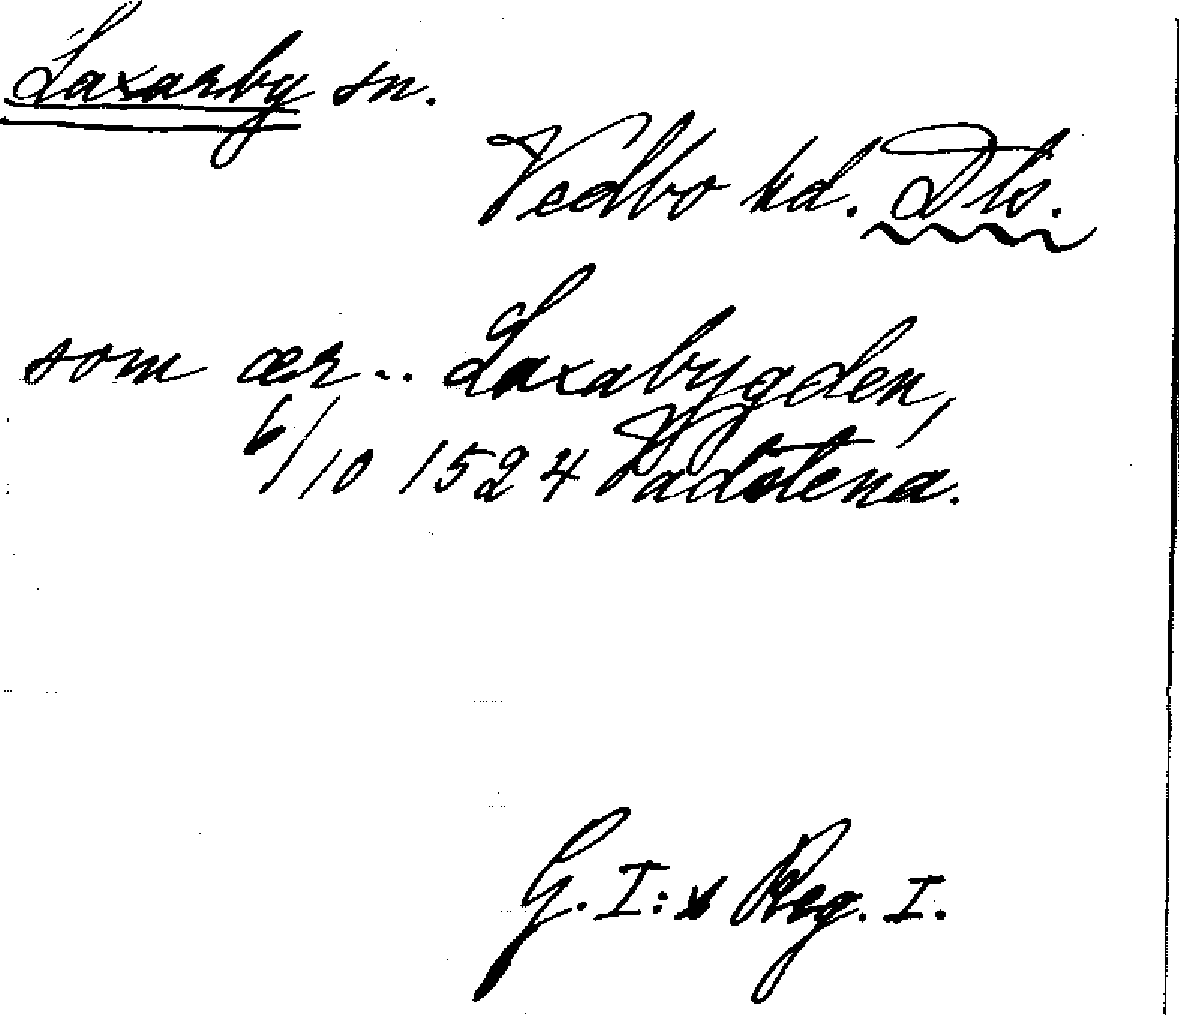 Laxarby sn.
Vedbo hd. Dls.
som ær.. Laxabygden,
6/10 1524 Vadstena.
G. I:s Reg. I.